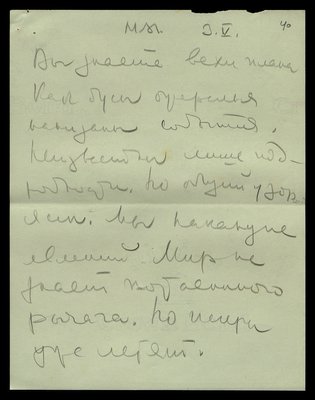 М.М. 9.V. 40
Вы знаете вехи плана
Как бусы ожерелья
нанизаны события.
Неизвестны лишь под-
робности. Но общий узор
ясен. Мы накануне
явлений. Мир не
знает потаенного
рычага. Но искры
уже летят.